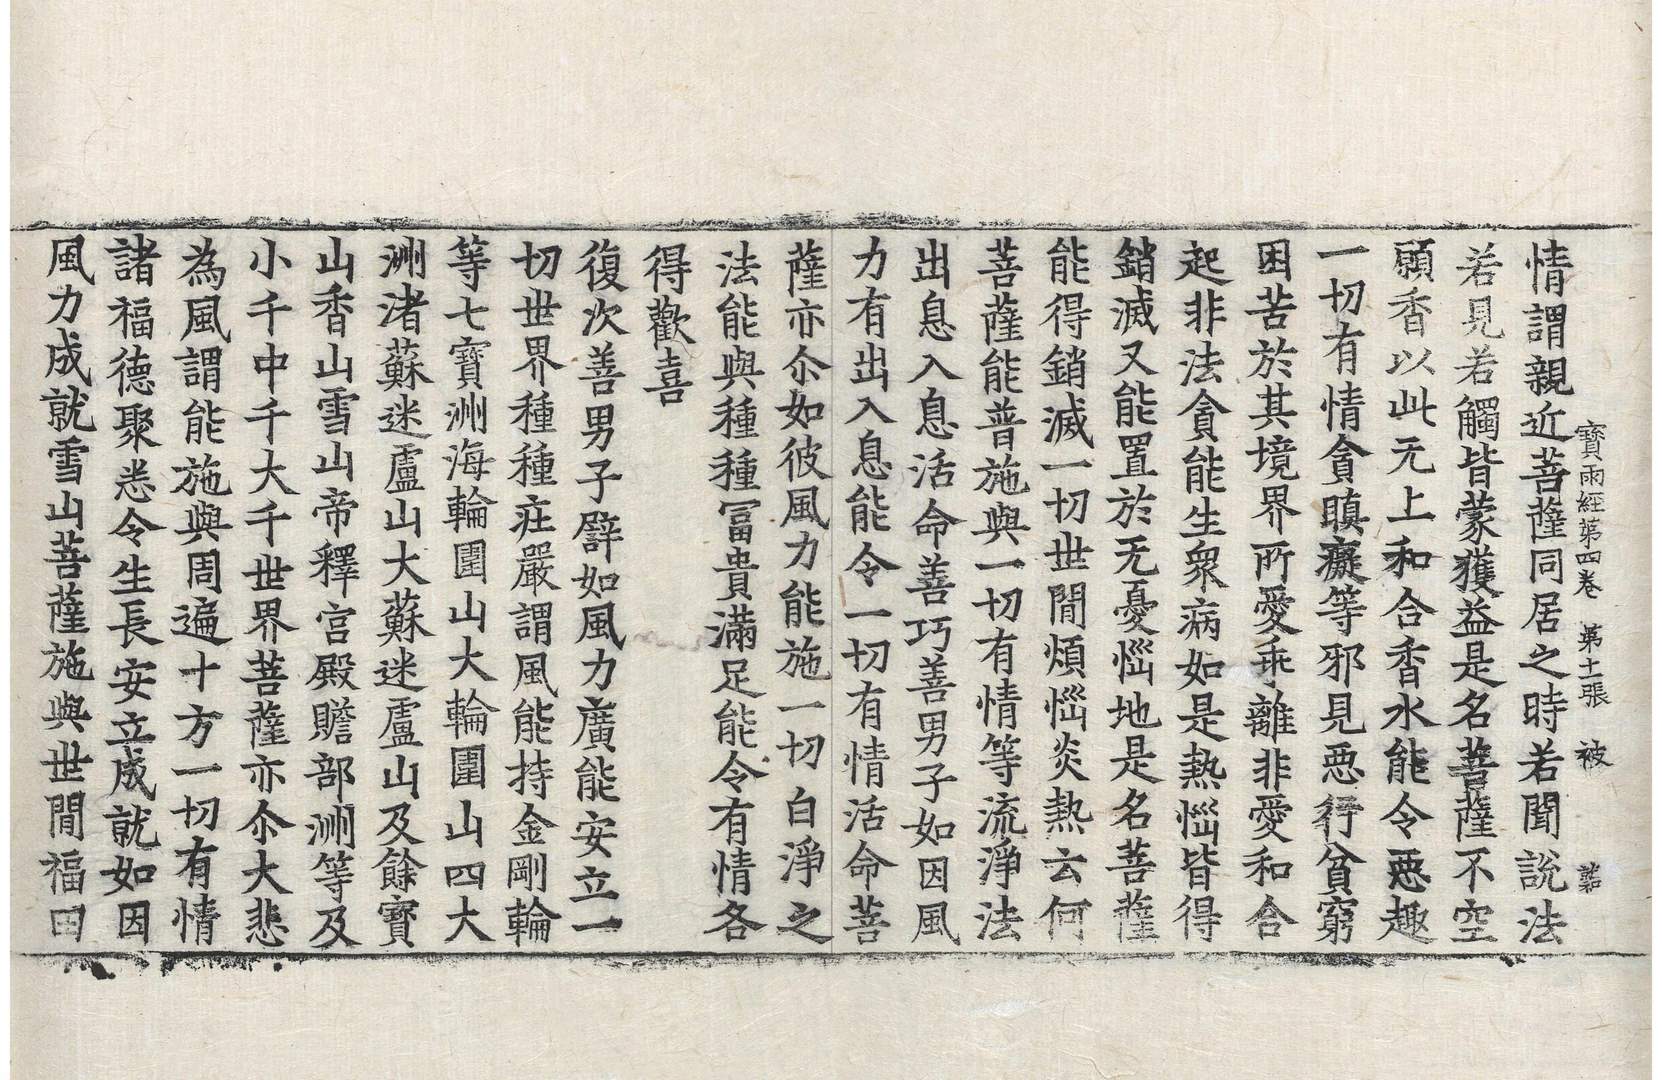 寶雨經第四卷　第十一張　被
情謂親近菩薩同居之時若聞說法
若見若觸皆蒙獲益是名菩薩不空
願香以此无上和合香水能令惡趣
一切有情貪瞋癡等邪見惡行貧窮
困苦於其境界所愛乖離非愛和合
起非法貪能生衆病如是熱惱皆得
銷滅又能置於无憂惱地是名菩薩
能得銷滅一切世閒煩惱炎熱云何
菩薩能普施與一切有情等流淨法
出息入息活命善巧善男子如因風
力有出入息能令一切有情活命菩
薩亦尒如彼風力能施一切白淨之
法能與種種冨貴滿足能令有情各
得歡喜
復次善男子譬如風力廣能安立一
切世界種種莊嚴謂風能持金剛輪
等七寶洲海輪圍山大輪圍山四大
洲渚蘇迷盧山大蘇迷盧山及餘寶
山香山雪山帝釋宮殿贍部洲等及
小千中千大千世界菩薩亦尒大悲
為風謂能施與周遍十方一切有情
諸福德聚悉令生長安立成就如因
風力成就雪山菩薩施與世閒福田